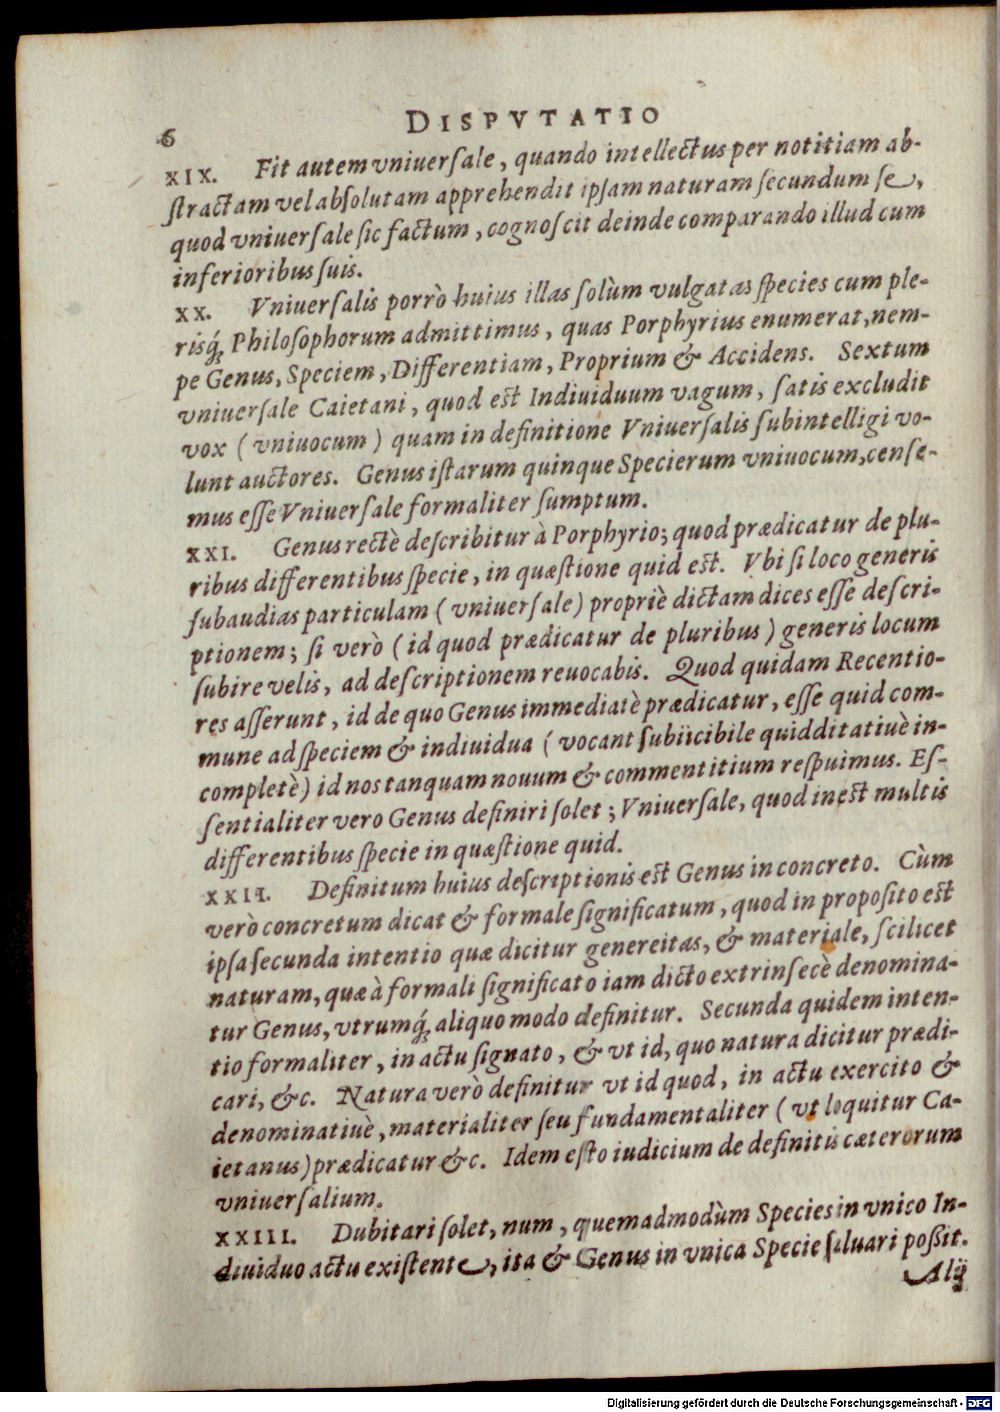 6
DISPVTATIO
XIX. Fit autem vniuerſale, quando intellectus per notitiam ab-
ſtractam vel abſolutam apprehendit ipſam naturam ſecundum ſe,
quod vniuerſale ſic factum, cognoſcit deinde comparando illud cum
inferioribus ſuis.
XX. Vniuerſalis porrò huius illas ſolùm vulgatas ſpecies cum ple-
risq́; Philoſophorum admittimus, quas Porphyrius enumerat, nem-
pe Genus, Speciem, Differentiam, Proprium & Accidens. Sextum
vniuerſale Caietani, quod est Indiuiduum vagum, ſatis excludit
vox (vniuocum) quam in definitione Vniuerſalis ſubintelligi vo-
lunt auctores. Genus iſtarum quinque Specierum vniuocum, cenſe-
mus eſſe Vniuerſale formaliter ſumptum.
XXI. Genus rectè deſcribitur à Porphyrio; quod prædicatur de plu-
ribus differentibus ſpecie, in quæſtione quid est. Vbi ſi loco generis
ſubaudias particulam (vniuerſale) propriè dictam dices eſſe deſcri-
ptionem; ſi verò (id quod prædicatur de pluribus) generis locum
ſubire velis, ad deſcriptionem reuocabis. Quod quidam Recentio-
res aſſerunt, id de quo Genus immediatè prædicatur, eſſe quid com-
mune ad ſpeciem & indiuidua (vocant ſubiicibile quidditatiuè in-
completè) id nos tanquam nouum & commentitium reſpuimus. Eſ-
ſentialiter vero Genus definiri ſolet; Vniuerſale, quod inest multis
differentibus ſpecie in quæſtione quid.
XXII. Definitum huius deſcriptionis est Genus in concreto. Cùm
verò concretum dicat & formale ſignificatum, quod in propoſito est
ipſa ſecunda intentio quæ dicitur genereitas, & materiale, ſcilicet
naturam, quæ à formali ſignificato iam dicto extrinſecè denomina-
tur Genus, vtrumq́; aliquo modo definitur. Secunda quidem inten-
tio formaliter, in actu ſignato, & vt id, quo natura dicitur prædi-
cari, &c. Natura verò definitur vt id quod, in actu exercito &
denominatiuè, materialiter ſeu fundamentaliter (vt loquitur Ca-
ietanus) prædicatur &c. Idem eſto iudicium de definitis cæterorum
vniuerſalium.
XXIII. Dubitari ſolet, num, quemadmodùm Species in vnico In-
diuiduo actu exiſtente, ita & Genus in vnica Specie ſaluari poßit.
Alij
Digitalisierung gefördert durch die Deutsche Forschungsgemeinschaft - DFG